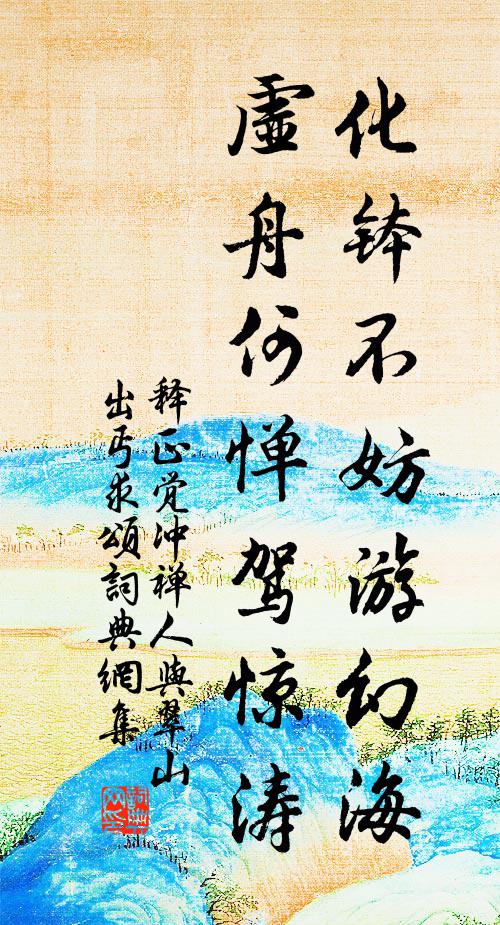 化钵不妨游幻海
虚舟何惮驾惊涛
释正觉冲禅人与翠山
出丐求颂词典网集